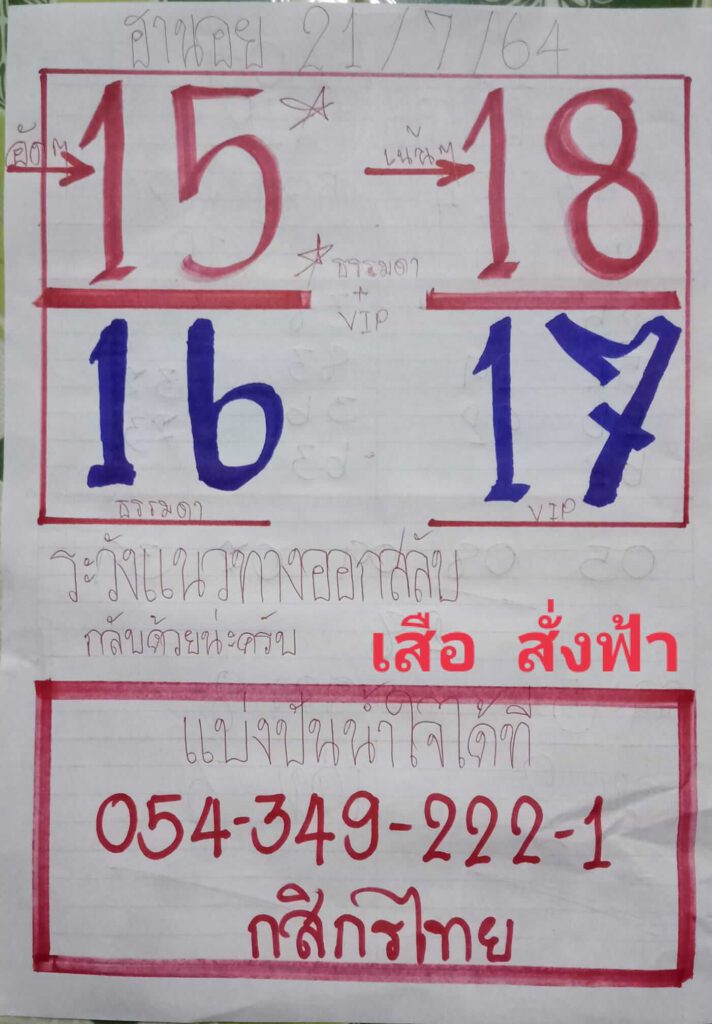 ฮานอย 21/7/64
อัดๆ 15 เน้นๆ 18
ธรรมดา
+
VIP
16 17
ธรรมดา VIP
ระวังแนวทางออกสลับ
กลับด้วยน่ะครับ
เสือ สั่งฟ้า
แบ่งปันน้ำใจได้ที่
054-349-222-1
กสิกรไทย